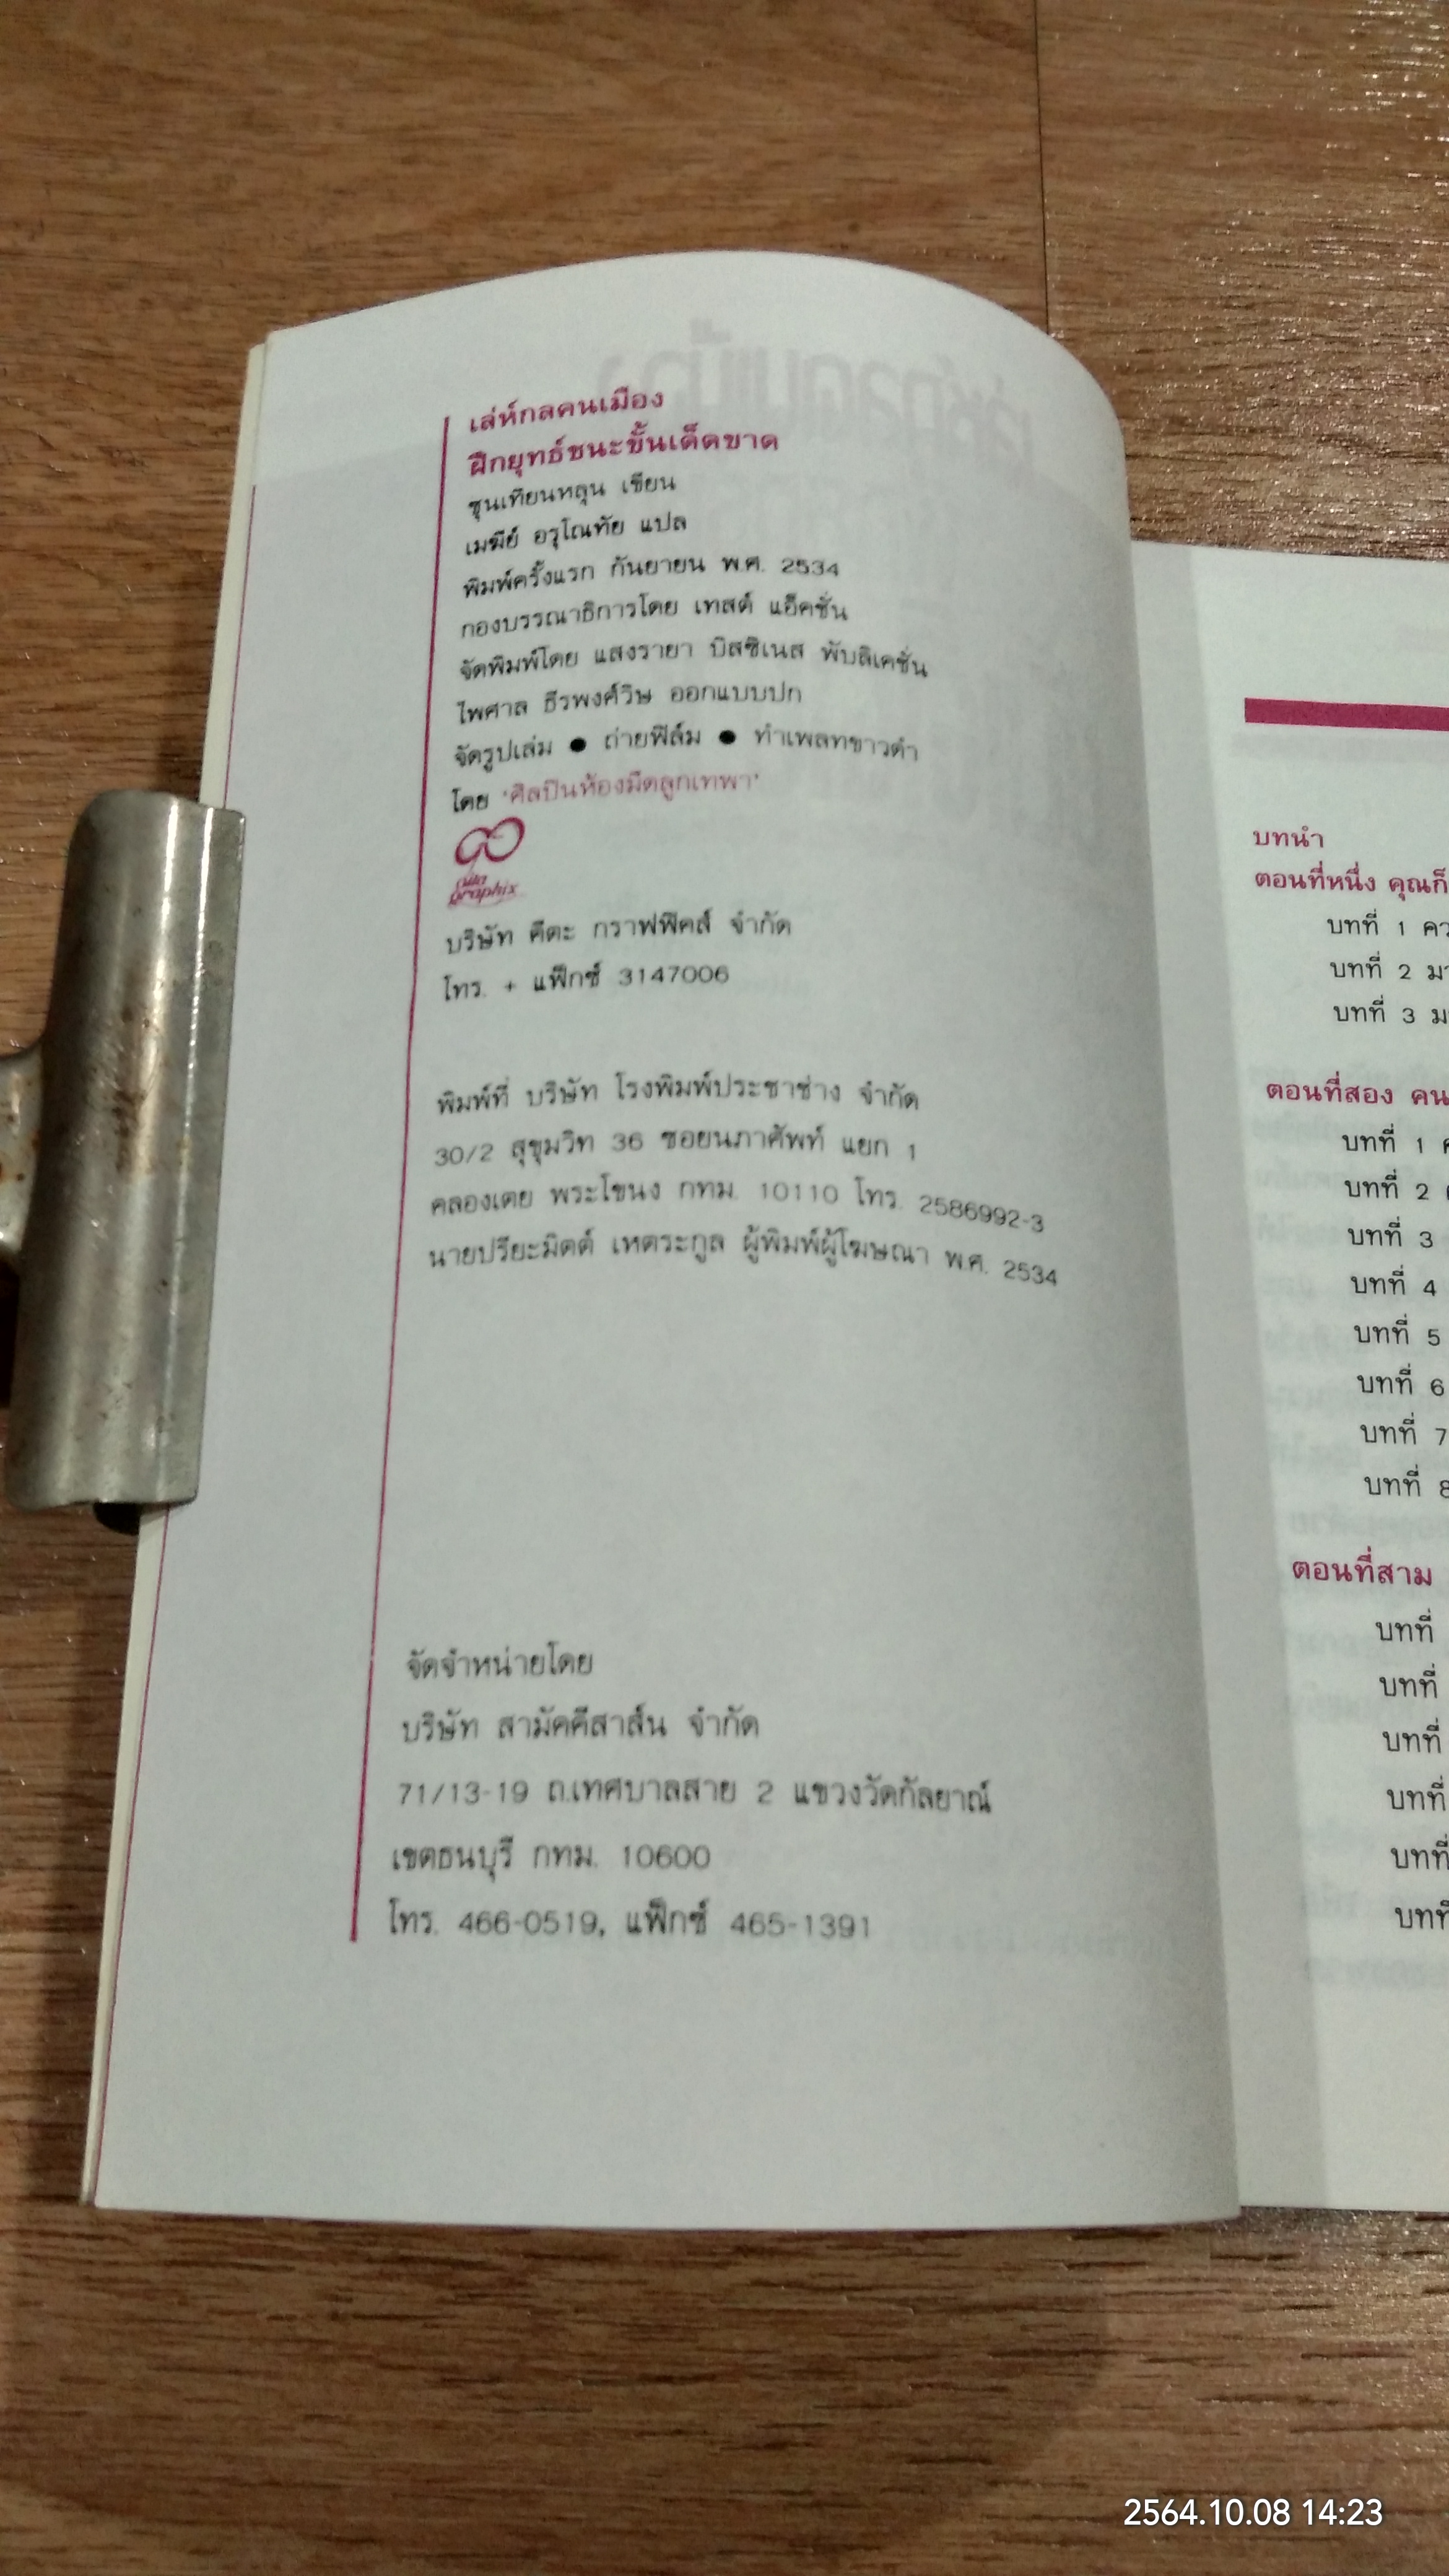 เล่ห์กลคนเมือง
ฝึกยุทธ์ชนะขั้นเด็ดขาด
ซุนเทียนหลุน เขียน
เมฆีย์ อรุโณทัย แปล
พิมพ์ครั้งแรก กันยายน พ.ศ. 2534
กองบรรณาธิการโดย เทสต์ แอ็คชั่น
จัดพิมพ์โดย แสงรายา บิสซิเนส พับลิเคชั่น
ไพศาล ธีรพงศ์วิษ ออกแบบปก
จัดรูปเล่ม ● ถ่ายฟิล์ม ● ทำเพลทขาวดำ
โดย 'ศิลปินห้องมืดลูกเทพา'
graphix
บริษัท คีตะ กราฟฟิคส์ จำกัด
โทร. + แฟ็กซ์ 3147006
พิมพ์ที่ บริษัท โรงพิมพ์ประชาช่าง จำกัด
30/2 สุขุมวิท 36 ซอยนภาศัพท์ แยก 1
คลองเตย พระโขนง กทม. 10110 โทร. 2586992-3
นายปรียะมิตต์ เหตระกูล ผู้พิมพ์ผู้โฆษณา พ.ศ. 2534
จัดจำหน่ายโดย
บริษัท สามัคคีสาส์น จำกัด
71/13-19 ถ.เทศบาลสาย 2 แขวงวัดกัลยาณ์
เขตธนบุรี กทม. 10600
โทร. 466-0519, แฟ็กซ์ 465-1391
บทนำ
ตอนที่หนึ่ง คุณก็
บทที่ 1
บทที่ 2
บทที่ 3
ตอนที่สอง คน
บทที่ 1
บทที่ 2
บทที่ 3
บทที่ 4
บทที่ 5
บทที่ 6
บทที่ 7
บทที่ 8
ตอนที่สาม
บทที่
บทที่
บทที่
บทที่
บทที่
บทที่
2564.10.08 14:23